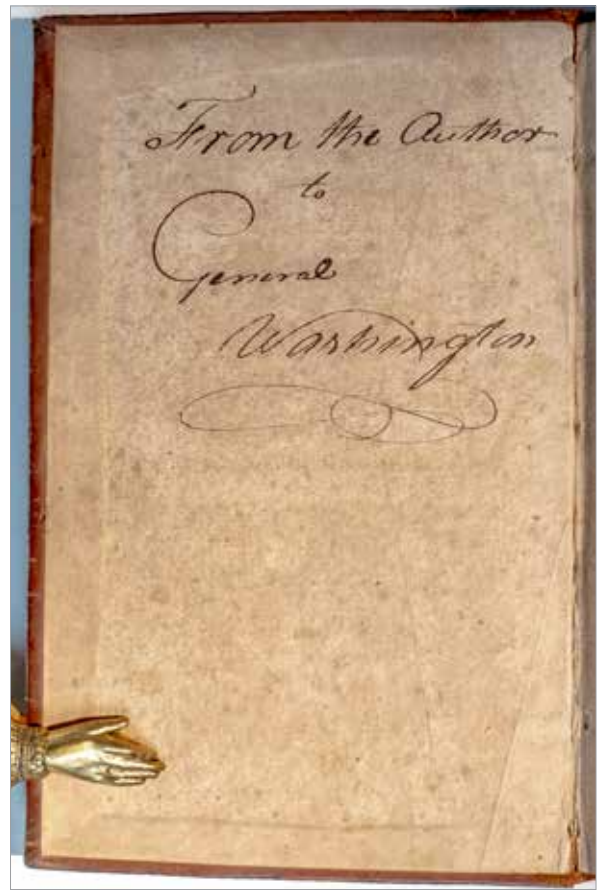 From the Author
to
General
Washington